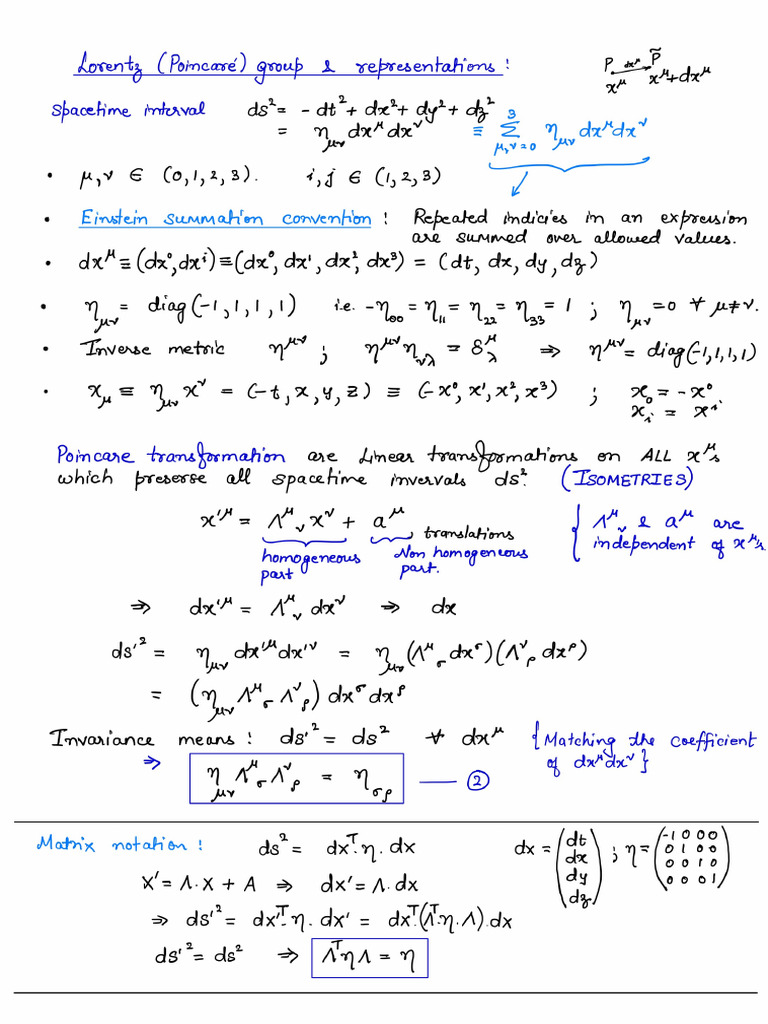 Lorentz (Poincaré) group & representations :
P dx^μ P̃
x^μ x^μ+dx^μ
spacetime interval ds² = - dt² + dx² + dy² + dz²
= η_μν dx^μ dx^ν ≡ Σ_{μ,ν=0}^{3} η_μν dx^μ dx^ν
• μ,ν ∈ (0,1,2,3). i,j ∈ (1,2,3)
• Einstein summation convention : Repeated indicies in an expression
are summed over allowed values.
• dx^μ ≡ (dx⁰, dx^i) ≡ (dx⁰, dx¹, dx², dx³) = (dt, dx, dy, dz)
• η_μν = diag(-1,1,1,1) i.e. -η_00 = η_11 = η_22 = η_33 = 1 ; η_μν = 0 ∀ μ≠ν.
• Inverse metric η^μν ; η^μν η_νλ = δ^μ_λ ⇒ η^μν = diag(-1,1,1,1)
• x_μ ≡ η_μν x^ν = (-t, x, y, z) ≡ (-x⁰, x¹, x², x³) ; x_0 = -x⁰
x_i = x^i.
Poincare transformation are Linear transformations on ALL x^μs
which preserse all spacetime invervals ds². (ISOMETRIES)
x'^μ = Λ^μ_ν x^ν + a^μ translations
homogeneous part
Non homogeneous part.
{ Λ^μ_ν & a^μ are
independent of x^μ's.
⇒ dx'^μ = Λ^μ_ν dx^ν ⇒ dx
ds'² = η_μν dx'^μ dx'^ν = η_μν (Λ^μ_σ dx^σ)(Λ^ν_ρ dx^ρ)
= (η_μν Λ^μ_σ Λ^ν_ρ) dx^σ dx^ρ
Invariance means : ds'² = ds² ∀ dx^μ {Matching the coefficient
of dx^μ dx^ν}
⇒ η_μν Λ^μ_σ Λ^ν_ρ = η_σρ —— ②
Matrix notation : ds² = dx^T. η. dx dx = (dt dx dy dz) ; η = (-1 0 0 0
0 1 0 0
0 0 1 0
0 0 0 1)
X' = Λ. X + A ⇒ dx' = Λ. dx
⇒ ds'² = dx'^T. η. dx' = dx^T.(Λ^T. η. Λ). dx
ds'² = ds² ⇒ Λ^T η Λ = η